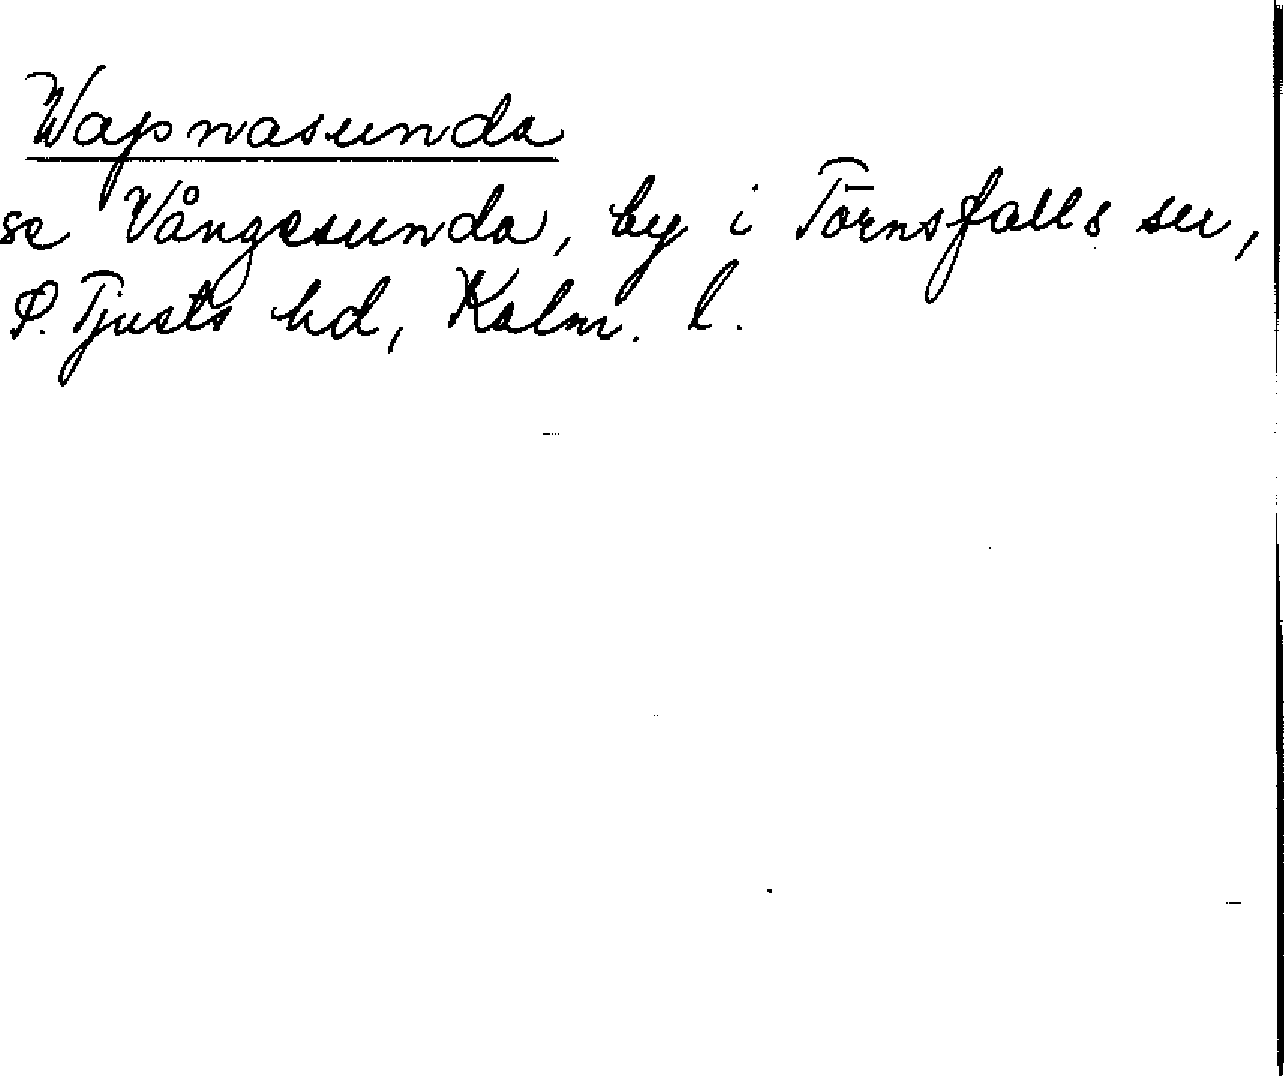 Wapnasunda
se Vångesunda, by i Törnsfalls sn,
S. Tjusts hd, Kalm. l.